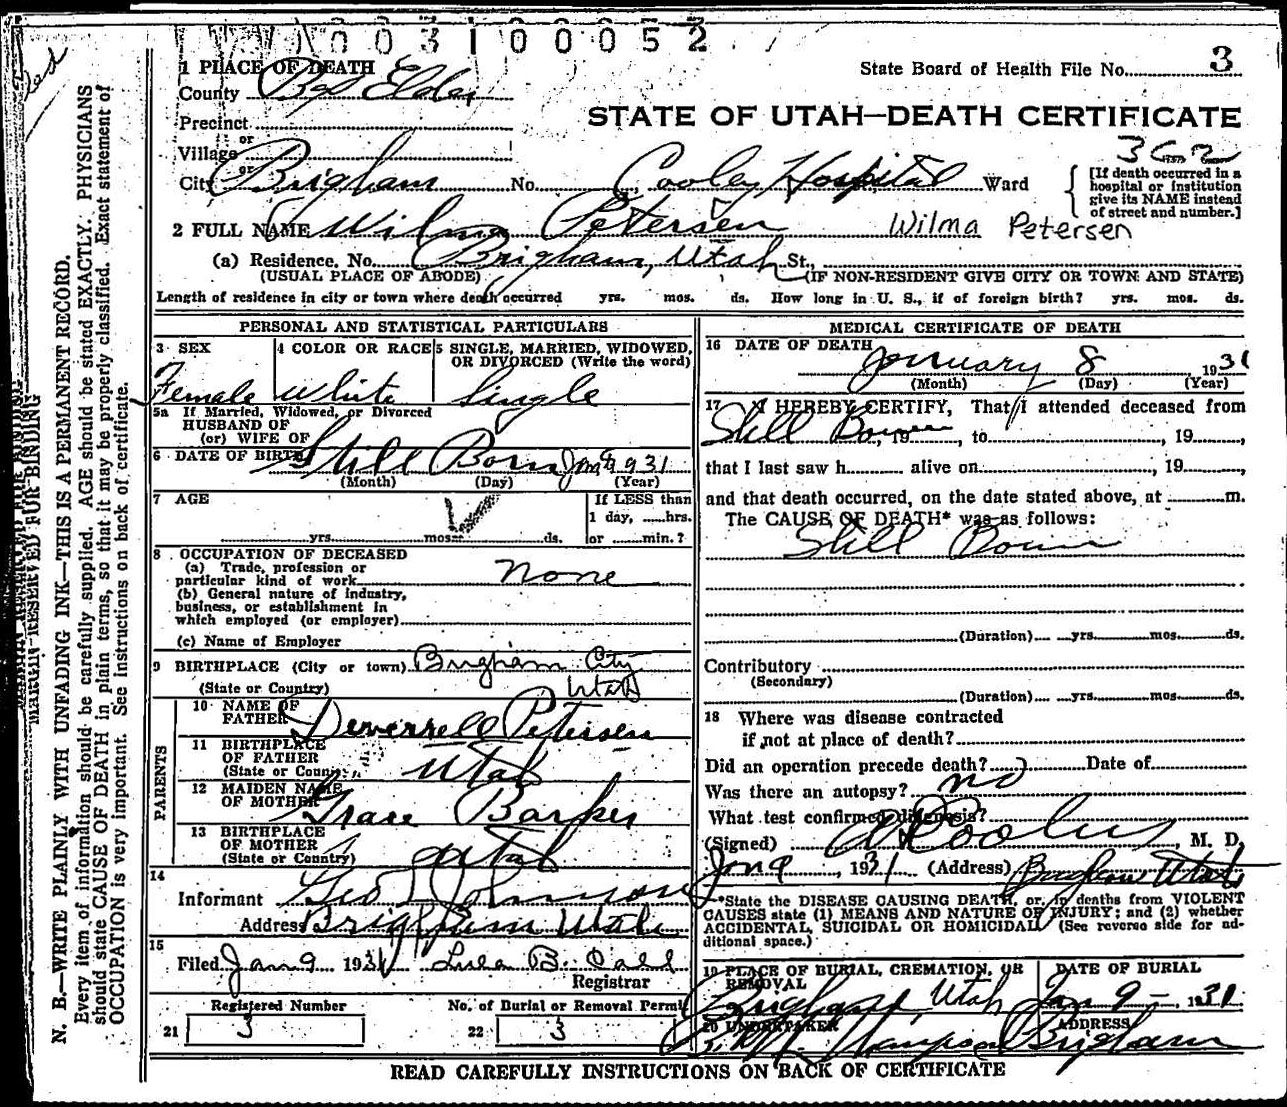 003100052
State Board of Health File No. 3
STATE OF UTAH—DEATH CERTIFICATE
1 PLACE OF DEATH
County Box Elder
Precinct
or
Village
or
City Brigham No. Cooley Hospital Ward
[If death occurred in a hospital or institution give its NAME instead of street and number.]
2 FULL NAME Wilma Petersen Wilma Petersen
(a) Residence. No. Brigham, Utah St.,
(USUAL PLACE OF ABODE) (IF NON-RESIDENT GIVE CITY OR TOWN AND STATE)
Length of residence in city or town where death occurred yrs. mos. ds. How long in U. S., if of foreign birth? yrs. mos. ds.
PERSONAL AND STATISTICAL PARTICULARS
3 SEX 4 COLOR OR RACE 5 SINGLE, MARRIED, WIDOWED, OR DIVORCED (Write the word)
Female White Single
5a If Married, Widowed, or Divorced
HUSBAND OF
(or) WIFE OF
6 DATE OF BIRTH Still Born Jan 8 1931
(Month) (Day) (Year)
7 AGE If LESS than
1 day, hrs.
yrs. mos. ds. or min.?
8 OCCUPATION OF DECEASED
(a) Trade, profession or
particular kind of work None
(b) General nature of industry,
business, or establishment in
which employed (or employer)
(c) Name of Employer
9 BIRTHPLACE (City or town) Brigham City
(State or Country) Utah
PARENTS
10 NAME OF FATHER Deverrell Petersen
11 BIRTHPLACE OF FATHER (State or Country) Utah
12 MAIDEN NAME OF MOTHER Grace Barker
13 BIRTHPLACE OF MOTHER (State or Country) Utah
14
Informant Geo Johnson
Address Brigham Utah
15
Filed Jan 9 1931 Registrar
Registered Number No. of Burial or Removal Permit
21 3 22 3
MEDICAL CERTIFICATE OF DEATH
16 DATE OF DEATH
January 8 1931
(Month) (Day) (Year)
17 I HEREBY CERTIFY, That I attended deceased from
Still Born, 19, to, 19,
that I last saw h alive on, 19,
and that death occurred, on the date stated above, at m.
The CAUSE OF DEATH* was as follows:
Still Born
(Duration) yrs. mos. ds.
Contributory
(Secondary)
(Duration) yrs. mos. ds.
18 Where was disease contracted
if not at place of death?
Did an operation precede death? Date of
Was there an autopsy? no
What test confirmed diagnosis?
(Signed) Cooley, M. D.
Jan 9, 1931 (Address) Brigham Utah
*State the DISEASE CAUSING DEATH, or, in deaths from VIOLENT
CAUSES state (1) MEANS AND NATURE OF INJURY; and (2) whether
ACCIDENTAL, SUICIDAL OR HOMICIDAL (See reverse side for ad-
ditional space.)
19 PLACE OF BURIAL, CREMATION, OR REMOVAL DATE OF BURIAL
Brigham, Utah Jan 9 - 1931
20 UNDERTAKER ADDRESS
Thompson Brigham
READ CAREFULLY INSTRUCTIONS ON BACK OF CERTIFICATE
MARGIN RESERVED FOR BINDING
N. B.—WRITE PLAINLY WITH UNFADING INK—THIS IS A PERMANENT RECORD.
Every item of information should be carefully supplied. AGE should be stated EXACTLY. PHYSICIANS
should state CAUSE OF DEATH in plain terms, so that it may be properly classified. Exact statement of
OCCUPATION is very important. See instructions on back of certificate.